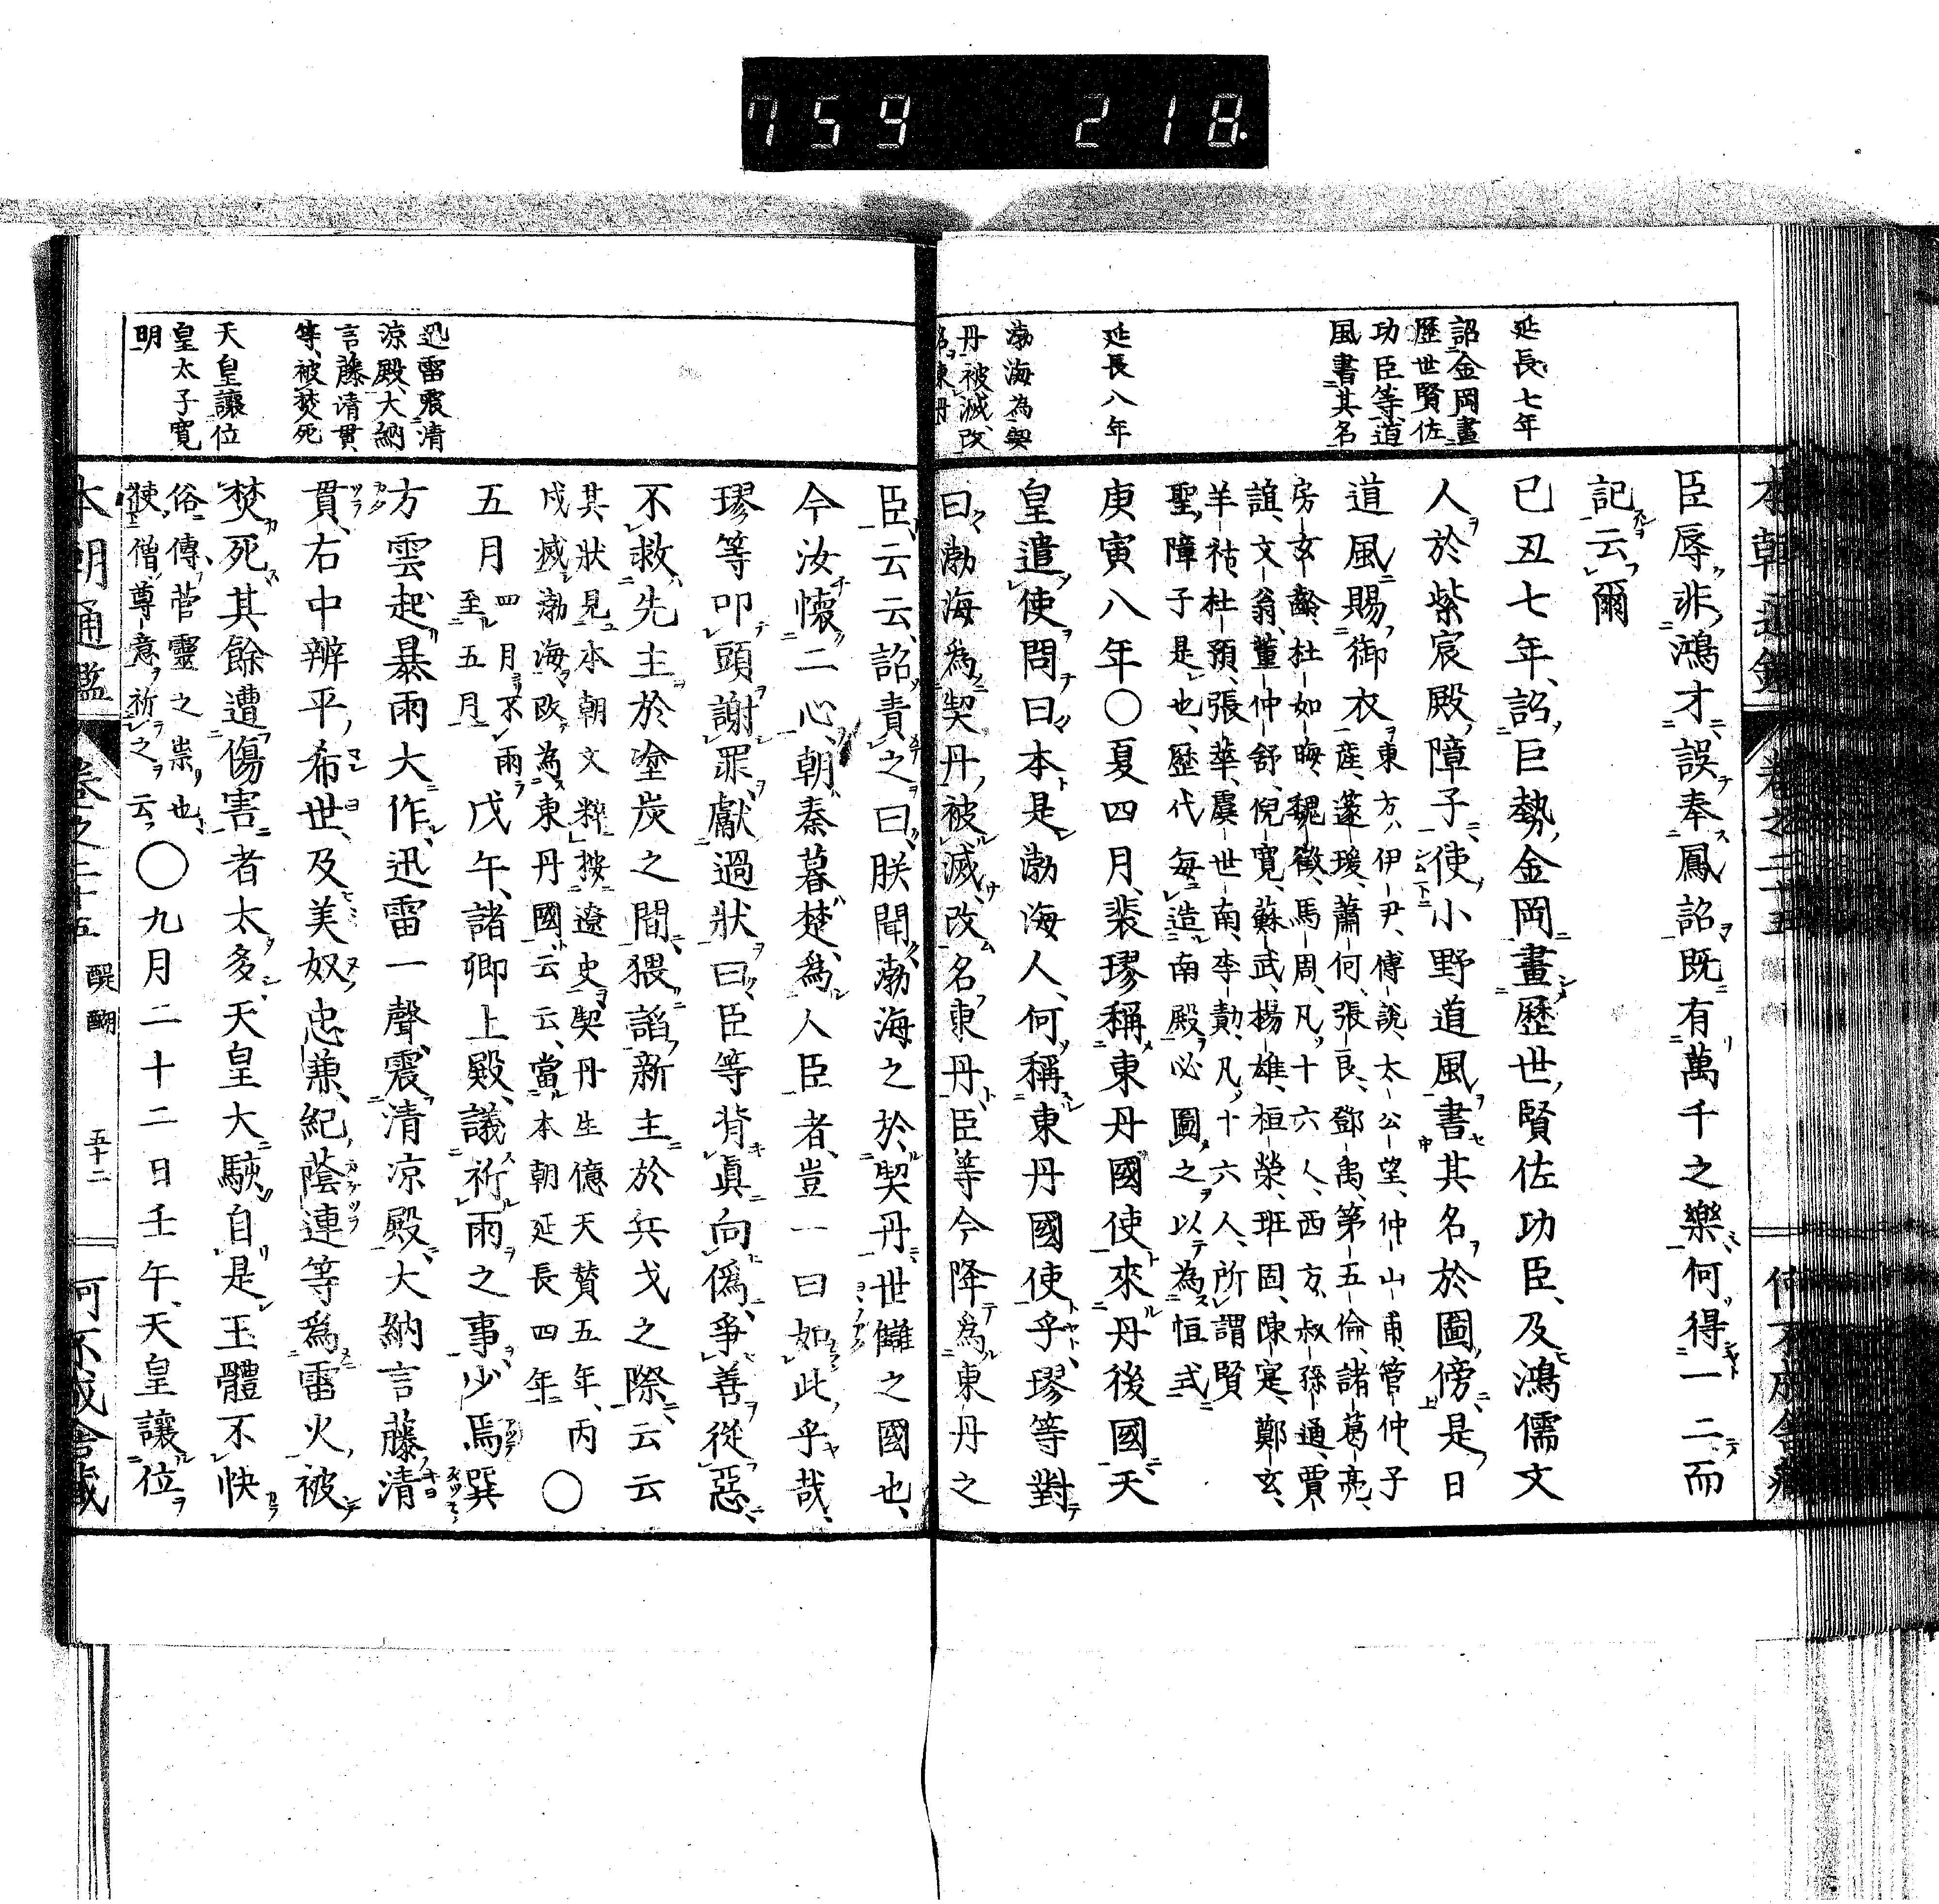 759 218.
延長七年
詔金岡畫
歷世賢佐
功臣等道
風書其名
延長八年
渤海為契
丹被滅改
臣辱非鴻才誤奉鳳詔既有萬千之樂何得一二而
記云爾
己丑七年詔巨勢金岡畫歷世賢佐功臣及鴻儒文
人於紫宸殿障子使小野道風書其名於圖傍是日
道風賜御衣
東方伊尹傅說太公望仲山甫管仲子
産蘧瑗蕭何張良鄧禹第五倫諸葛亮
房玄齡杜如晦魏徵馬周凡十六人西方叔孫通賈
誼文翁董仲舒倪寬蘇武楊雄桓榮班固陳寔鄭玄
羊祜杜預張華虞世南李勣凡十六人所謂賢
聖障子是也歷代每造南殿必圖之以為恒式
庚寅八年〇夏四月裴璆稱東丹國使來丹後國天
皇遣使問曰本是渤海人何稱東丹國使乎璆等對
曰渤海為契丹被滅改名東丹臣等今降為東丹之
迅雷震清
涼殿大納
言藤清貫
等被焚死
天皇讓位
皇太子寬
明
臣云云詔責之曰朕聞渤海之於契丹世讎之國也
今汝懷二心朝秦暮楚為人臣者豈一曰如此乎哉
璆等叩頭謝罪獻過狀曰臣等背眞向僞爭善從惡
不救先主於塗炭之間猥謟新主於兵戈之際云云
其狀見本朝文粹按遼史契丹生億天贊五年丙
戌滅渤海改為東丹國云云當本朝延長四年〇
五月
四月不雨
至五月
戊午諸卿上殿議祈雨之事少焉巽
方雲起暴雨大作迅雷一聲震清凉殿大納言藤清
貫右中辨平希世及美奴忠兼紀蔭連等爲雷火被
焚死其餘遭傷害者太多天皇大駭自是玉體不快
俗傳菅靈之祟也
使僧尊意祈之云
〇九月二十二日壬午天皇讓位
本朝通鑑 卷之二十五 醍醐 五十二